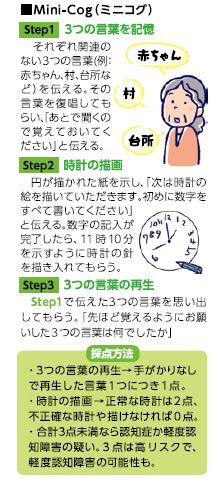 ■Mini-Cog(ミニコグ)
Step1 3つの言葉を記憶
それぞれ関連の
ない3つの言葉(例:
赤ちゃん、村、台所な
ど)を伝える。その
言葉を復唱しても
らい、「あとで聞くの
で覚えておいてく
ださい」と伝える。
赤ちゃん
村
台所
Step2 時計の描画
円が描かれた紙を示し、「次は時計の
絵を描いていただきます。初めに数字を
すべて書いてください」
と伝える。数字の記入が
完了したら、11時10分
を示すように時計の針
を描き入れてもらう。
Step3 3つの言葉の再生
Step1で伝えた3つの言葉を思い出
してもらう。「先ほど覚えるようにお願
いした3つの言葉は何でしたか」
採点方法
・3つの言葉の再生→手がかりなし
で再生した言葉1つにつき1点。
・時計の描画→正常な時計は2点、
不正確な時計や描けなければ0点。
・合計3点未満なら認知症か軽度認
知障害の疑い。3点は高リスクで、
軽度認知障害の可能性も。